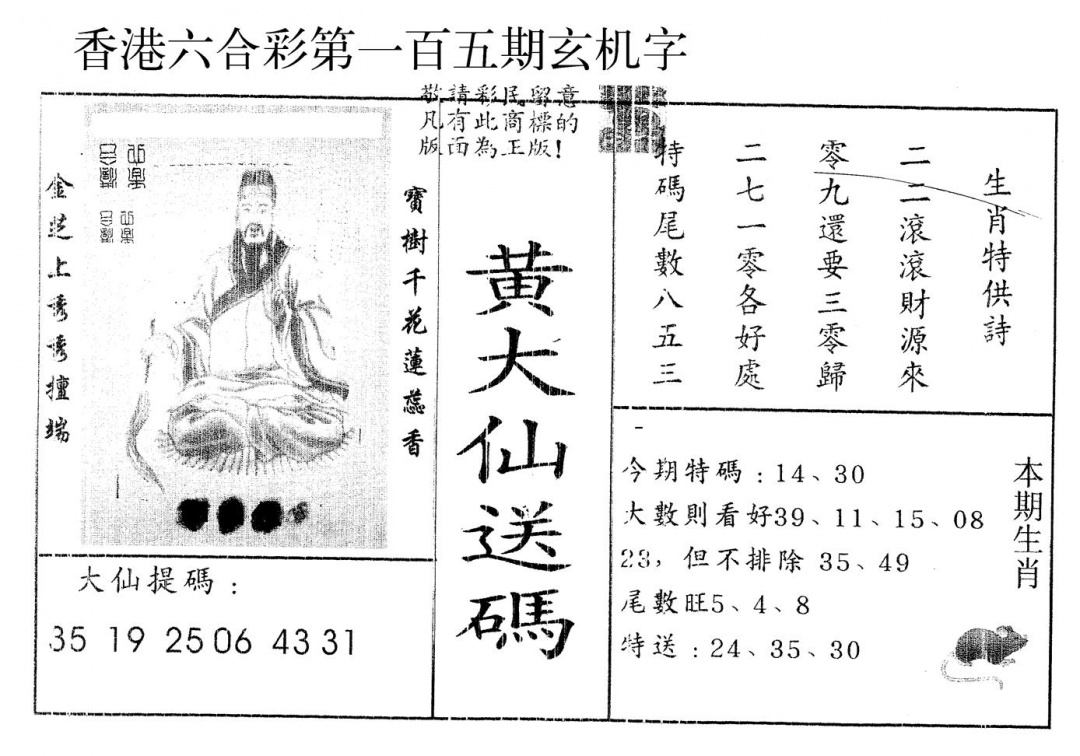 香港六合彩第一百五期玄机字
敬請彩民留意
凡有此商標的
版面為正版!
寶樹千花蓮蕊香
黃大仙送碼
生肖特供詩
二二滾滾財源來
零九還要三零歸
二七一零各好處
特碼尾數八五三
大仙提碼：
35 19 25 06 43 31
今期特碼：14、30
大數則看好39、11、15、08
23，但不排除 35、49
尾數旺5、4、8
特送：24、35、30
本期生肖